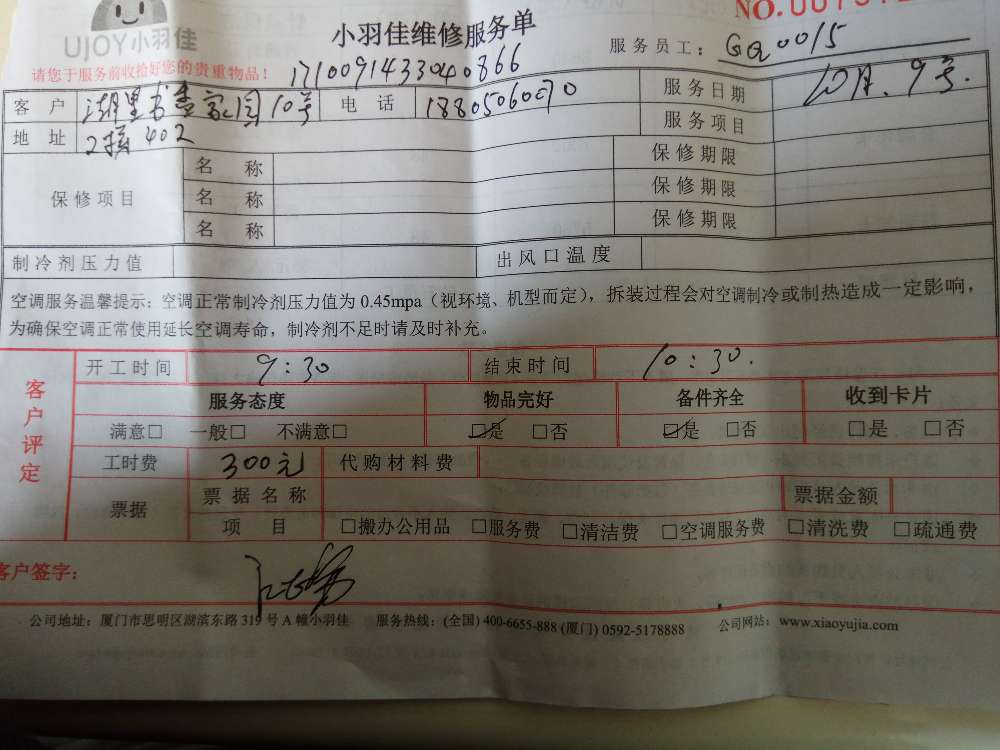 UJOY小羽佳
小羽佳维修服务单
NO.
服务员工：GQ0015
请您于服务前收拾好您的贵重物品！
1710091433040866
客户 湖里 家园10号 电话 18805060070 服务日期 10月.9号.
地址 2栋402 服务项目
保修项目
名称 保修期限
名称 保修期限
名称 保修期限
制冷剂压力值 出风口温度
空调服务温馨提示：空调正常制冷剂压力值为 0.45mpa（视环境、机型而定），拆装过程会对空调制冷或制热造成一定影响，
为确保空调正常使用延长空调寿命，制冷剂不足时请及时补充。
客户评定
开工时间 9:30 结束时间 10:30.
服务态度 物品完好 备件齐全 收到卡片
满意□ 一般□ 不满意□ ☑是 □否 ☑是 □否 □是 □否
工时费 300元 代购材料费
票据 票据名称 票据金额
项目 □搬办公用品 □服务费 □清洁费 □空调服务费 □清洗费 □疏通费
客户签字：
公司地址：厦门市思明区湖滨东路 319 号 A 幢小羽佳 服务热线：(全国) 400-6655-888 (厦门) 0592-5178888 公司网站：www.xiaoyujia.com